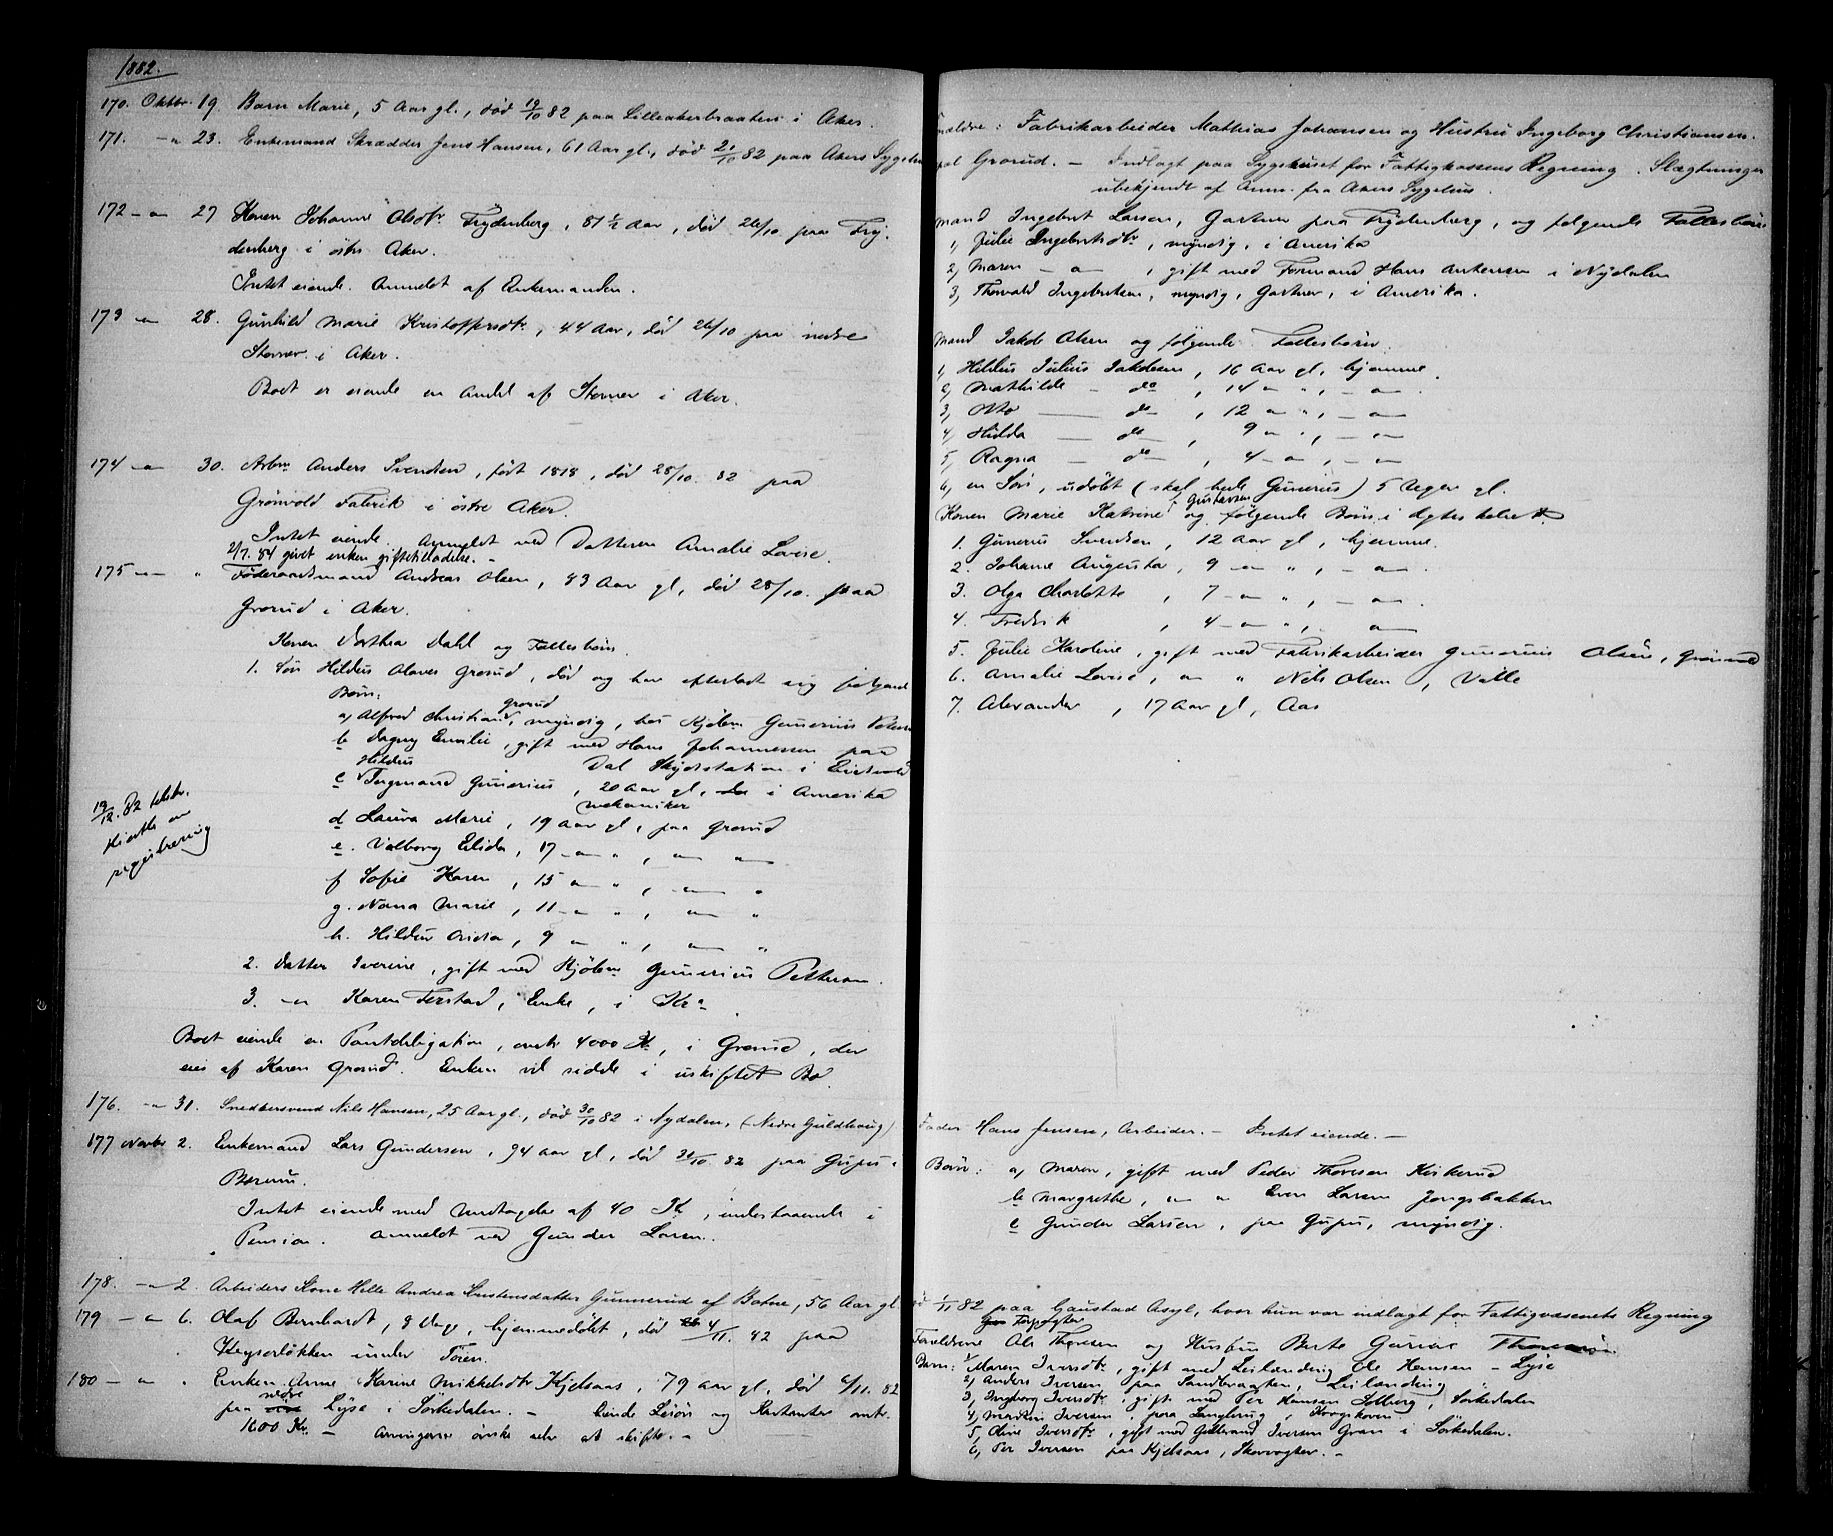 1882.
170. Oktbr. 19. Barn Marie, 5 Aar gl., død 19/10 82 paa Lilleakerbraaten i Aker.
171. -"- 23. Enkemand Skrædder Jens Hansen, 61 Aar gl., død 21/10 82 paa Akers Sygehus
172 -"- 27 Konen Johanne Olsdtr. Frydenberg, 81 1/2 Aar, død 26/10 paa Fry-
denberg i östre Aker.
Intet eiende. Anmeldt af Enkemanden.
173 -"- 28. Gunhild Marie Kristoffersdtr., 44 Aar, död 26/10 paa nedre
Stovner i Aker.
Boet er eiende en Andel af Stovner i Aker.
174 -"- 30. Arbm. Anders Svendsen, födt 1818, död 28/10 82 paa
Grönvold Fabrik i östre Aker.
Intet eiende. Anmeldt ved Datteren Amalie Lovise.
2/7. 84 givet enken giftetilladelse. -
175 -"- " Föderaadsmand Andreas Olsen, 83 Aar gl, död 28/10. paa
Grorud i Aker.
Konen Dorthea Dahl og Fællesbörn.
1. Sön Hildus Olaves Grorud, död og har efterladt sig følgende
Börn:
a, Alfred Christian Grorud, myndig, hos Kjöbm Gunerius Pettersen
b Dagny Emilie, gift med Hans Johannessen paa
Dal Skydsstation i Eidsvold
c Hildus Ingmand Gunerius, 20 Aar gl, i Amerika
mekaniker
d Laura Marie, 19 Aar gl, paa Grorud
e. Valborg Elida, 17 -"- ", -"- -"-
f Sofie Karen, 15 -"- ", -"- "
g. Nanna Marie, 11 -"- ", -"- "
h. Hildur 9 -"- ", -"- "
19/12. 82 registrering
2. Datter Iverine, gift med Kjöbm Gunerius Pettersen.
3. -"- Karen Terstad, Enke, i Kra.
Boet eiende en Pantobligation, 4000 Kr, i Grorud, der
eies af Karen Grorud. Enken vil sidde i uskiftet Bo.
176. -"- 31. Snedkersvend Nils Hansen, 25 Aar gl., död 30/10 82 i Nydalen, (Nedre Guldhaug)
177 Novbr 2. Enkemand Lars Gundersen, 94 Aar gl, död 31/10. 82 paa Gupu i
Bærum.
Intet eiende med Undtagelse af 40 Kr, indestaaende i
Pension. Anmeldt ved Gunder Larsen.
178. -"- 2. Arbeiders Kone Helle Andrea Kristensdatter Gunnerud af Botne, 56 Aar gl.
179 -"- 6. Olaf Bernhardt, 8 Dage, hjemmedöbt, död 4/11. 82 paa
Keyserlökken under Tøien.
180 -"- " Enken Anne Karine Mikkelsdtr Kjelsaas, 79 Aar gl. død 6/11. 82
paa nedre Lyse i Sörkedalen. - Eiende Lösöre og
1600 Kr. - Arvingerne önske selv at skifte. -
Forældre: Fabrikarbeider Mathias Johansen og Hustru Ingeborg Christiansen.
Grorud. - Indlagt paa Sygehuset for Fattigkassens Regning. Slægtninger
ubekjendt af Anm. fra Akers Sygehus.
Mand Ingebret Larsen, Gartner paa Frydenberg, og følgende Fællesbörn
1, Julie Ingebretsdtr., myndig, i Amerika
2, Maren -"- , gift med Formand Hans Antensen i Nydalen
3, Thorvald Ingebretsen, myndig, Gartner, i Amerika.
Mand Jakob Olsen og følgende Fællesbörn
1, Hildus Julius Jakobsen, 16 Aar gl, hjemme.
2, Mathilde - do , 14 -"- ", -"-
3, Otto - do , 12 -"- ", -"-
4, Hilda - do , 9 -"- ", -"-
5, Ragna - do , 4 -"- , -"-
6, en Sön, udöbt (skal hede Gunerius) 5 Uger gl.
Konen Marie Katrine Gustavsen og følgende Börn i Ægteskabet.
1. Gunerius Svendsen, 12 Aar gl, hjemme.
2. Johanne Augusta, 9 -"- ", -"- .
3. Olga Charlotte , 7 -"- ", -"- .
4. Fredrik , 4 -"- ", -"-
5. Julie Karoline, gift med Fabrikarbeider Gunerius Olsen, Grönvold
6. Amalie Lovise, -"- " Nils Olsen, Valle
7. Alexander , 17 Aar gl, Aas
Fader Hans Jensen, Arbeider. - Intet eiende. -
Börn: a, Maren, gift med Peder Thoresen Kirkerud
b Margrethe, -"- " Even Larsen Jongsbakken
c Gunder Larsen, paa Gupu, myndig.
1/11 82 paa Gaustad Asyl, hvor hun var indlagt for Fattigvæsenets Regning
Forældrene Ole Thoresen og Hustru Berte Gurine
Börn: 1, Maren Iversdtr, gift med Leilænding Ole Hansen - Lyse
2, Anders Iversen paa Sandbraaten, Leilænding
3, Ingeborg Iversdtr, gift med Per Hansen Solberg, Sörkedalen
4, Martin Iversen, paa Langlien, Krogskoven
5, Oline Iversdtr, gift med Gulbrand Iversen Gran i Sörkedalen.
6, Per Iversen paa Kjelsaas, Skovvogter. -